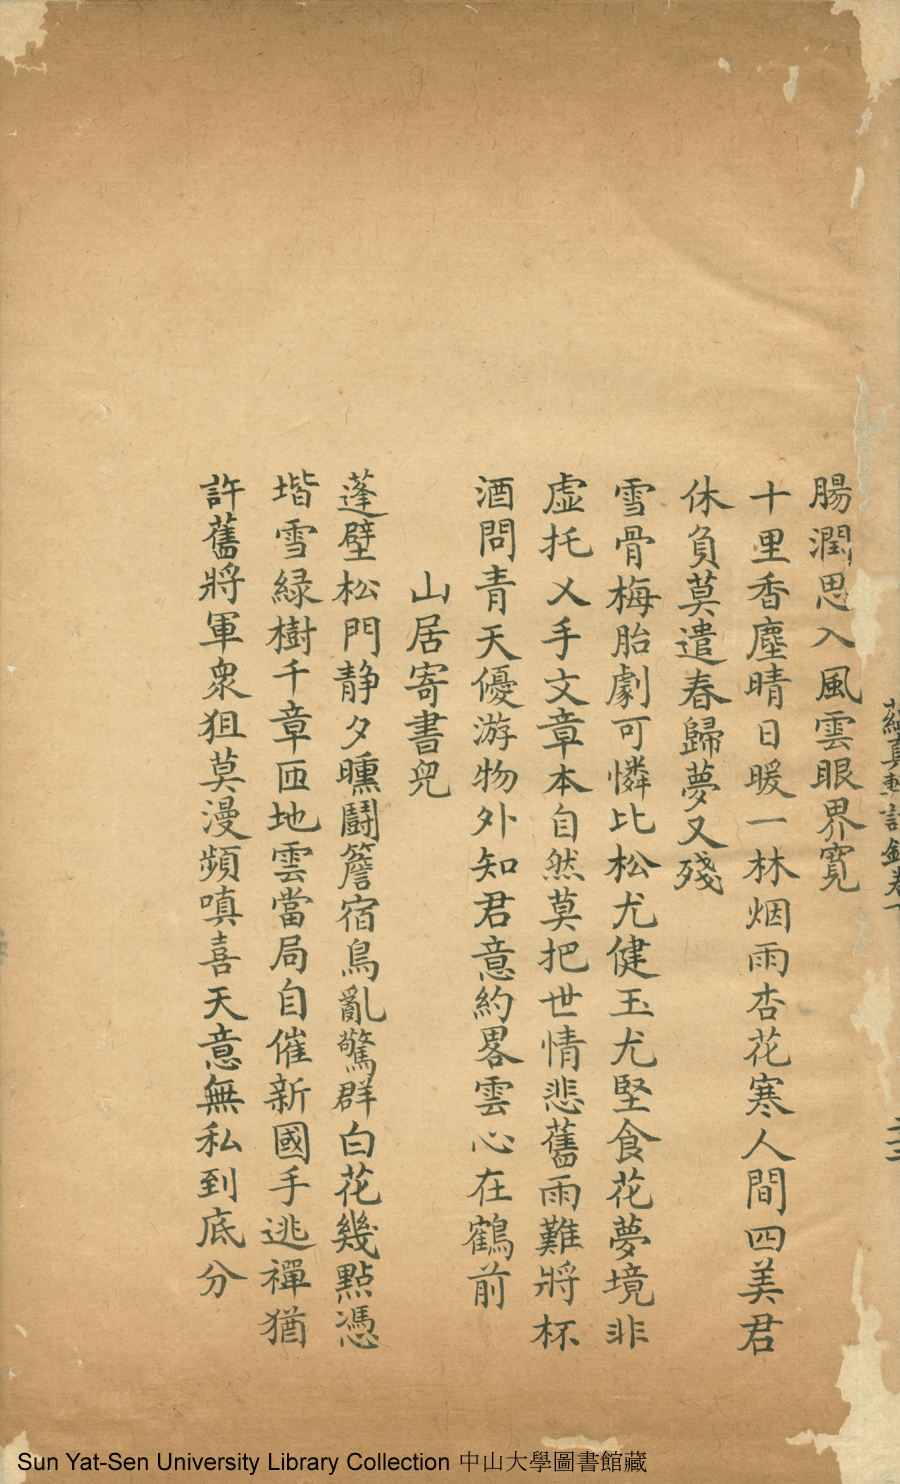 腸潤思入風雲眼界寬
十里香塵晴日暖一林烟雨杏花寒人間四美君
休負莫遣春歸夢又殘
雪骨梅胎劇可憐比松尤健玉尤堅食花夢境非
虛托乂手文章本自然莫把世情悲舊雨難將杯
酒問青天優游物外知君意約畧雲心在鶴前
山居寄書兒
蓬壁松門静夕曛鬪簷宿鳥亂驚群白花幾點憑
堦雪綠樹千章匝地雲當局自催新國手逃禪猶
許舊將軍衆狙莫漫頻嗔喜天意無私到底分
Sun Yat-Sen University Library Collection 中山大學圖書館藏